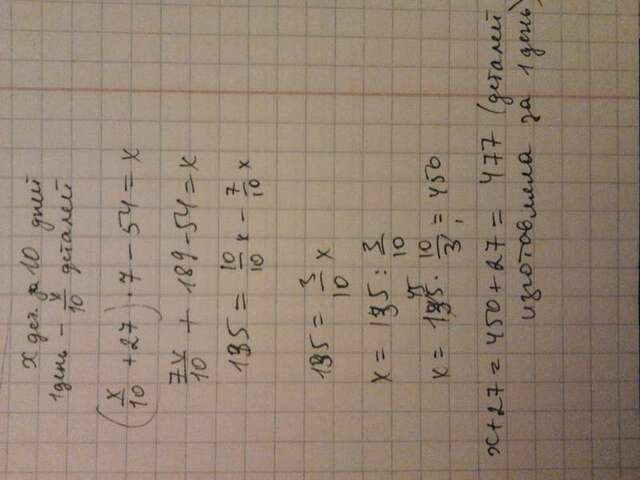 x дет. за 10 дней
1 день – x/10 деталей
(x/10 + 27) · 7 – 54 = x
7x/10 + 189 – 54 = x
135 = 10/10 x – 7/10 x
135 = 3/10 x
x = 135 : 3/10
x = 135 45 · 10/3 1 = 450
x + 27 = 450 + 27 = 477 (деталей
изготовляла за 1 день)